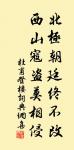 北極朝廷終不改
西山寇盜莫相侵
杜甫登樓詩詞典網集